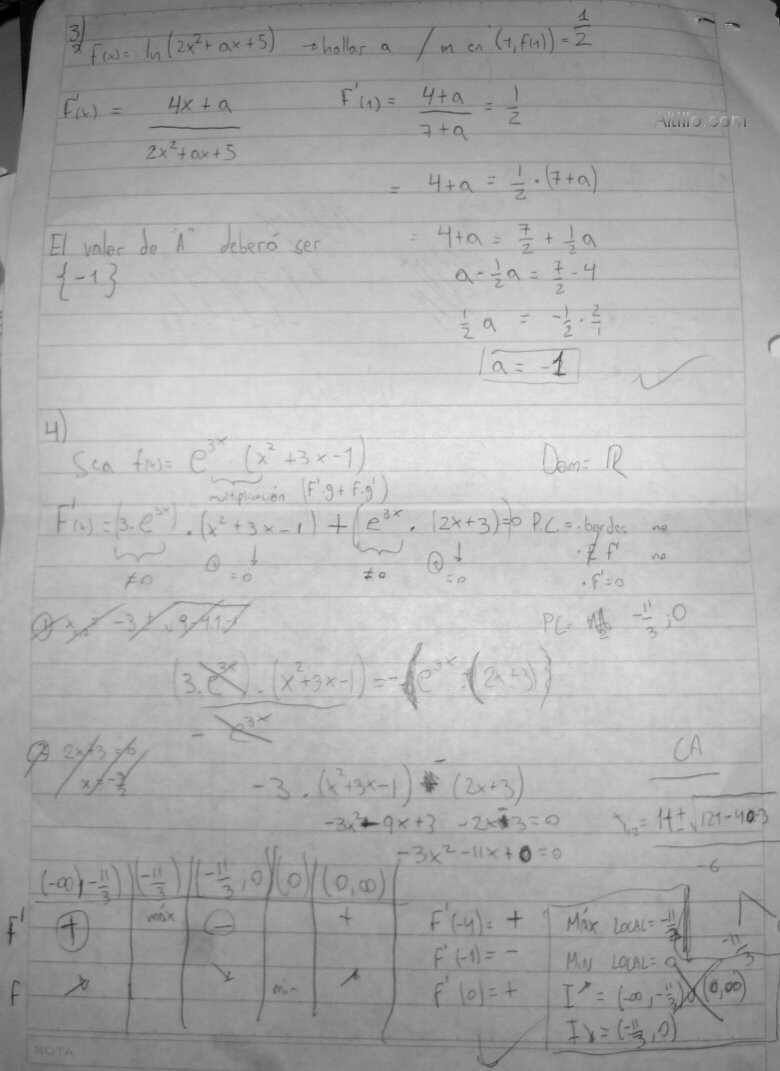 3)
f(x) = ln(2x²+ax+5) → hallar a / m en (1, f(1)) = 1/2
F'(x) = (4x+a)/(2x²+ax+5) F'(1) = (4+a)/(7+a) = 1/2
Altillo.com
= 4+a = 1/2 · (7+a)
= 4+a = 7/2 + 1/2 a
El valor de "A" deberá ser
{-1}
a - 1/2 a = 7/2 - 4
1/2 a = -1/2 · 2/1
a = -1
4)
Sea f(x) = e^3x · (x²+3x-1) Dom = R
multiplicación (F'·g + F·g')
F'(x) = (3·e^3x) · (x²+3x-1) + (e^3x · (2x+3)) = 0 P.C = · bordes no
≠0 ① =0 ≠0 ② =0 · ∄ f' no
· F' = 0
PC = -11/3 ; 0
(3·e^3x) · (x²+3x-1) = -(e^3x · (2x+3))
- e^3x
② 2x+3=0
x = -3/2
CA
-3 · (x²+3x-1) - (2x+3)
-3x² - 9x + 3 - 2x - 3 = 0
-3x² - 11x + 0 = 0
-6
(-∞, -11/3) (-11/3) (-11/3, 0) (0) (0, ∞)
F' + máx - +
F ↗ ↘ min ↗
F'(-4) = +
F'(-1) = -
F'(0) = +
Máx LOCAL = -11/3
Min LOCAL = 0
I↗ = (-∞, -11/3) ∪ (0, ∞)
I↘ = (-11/3, 0)
NOTA